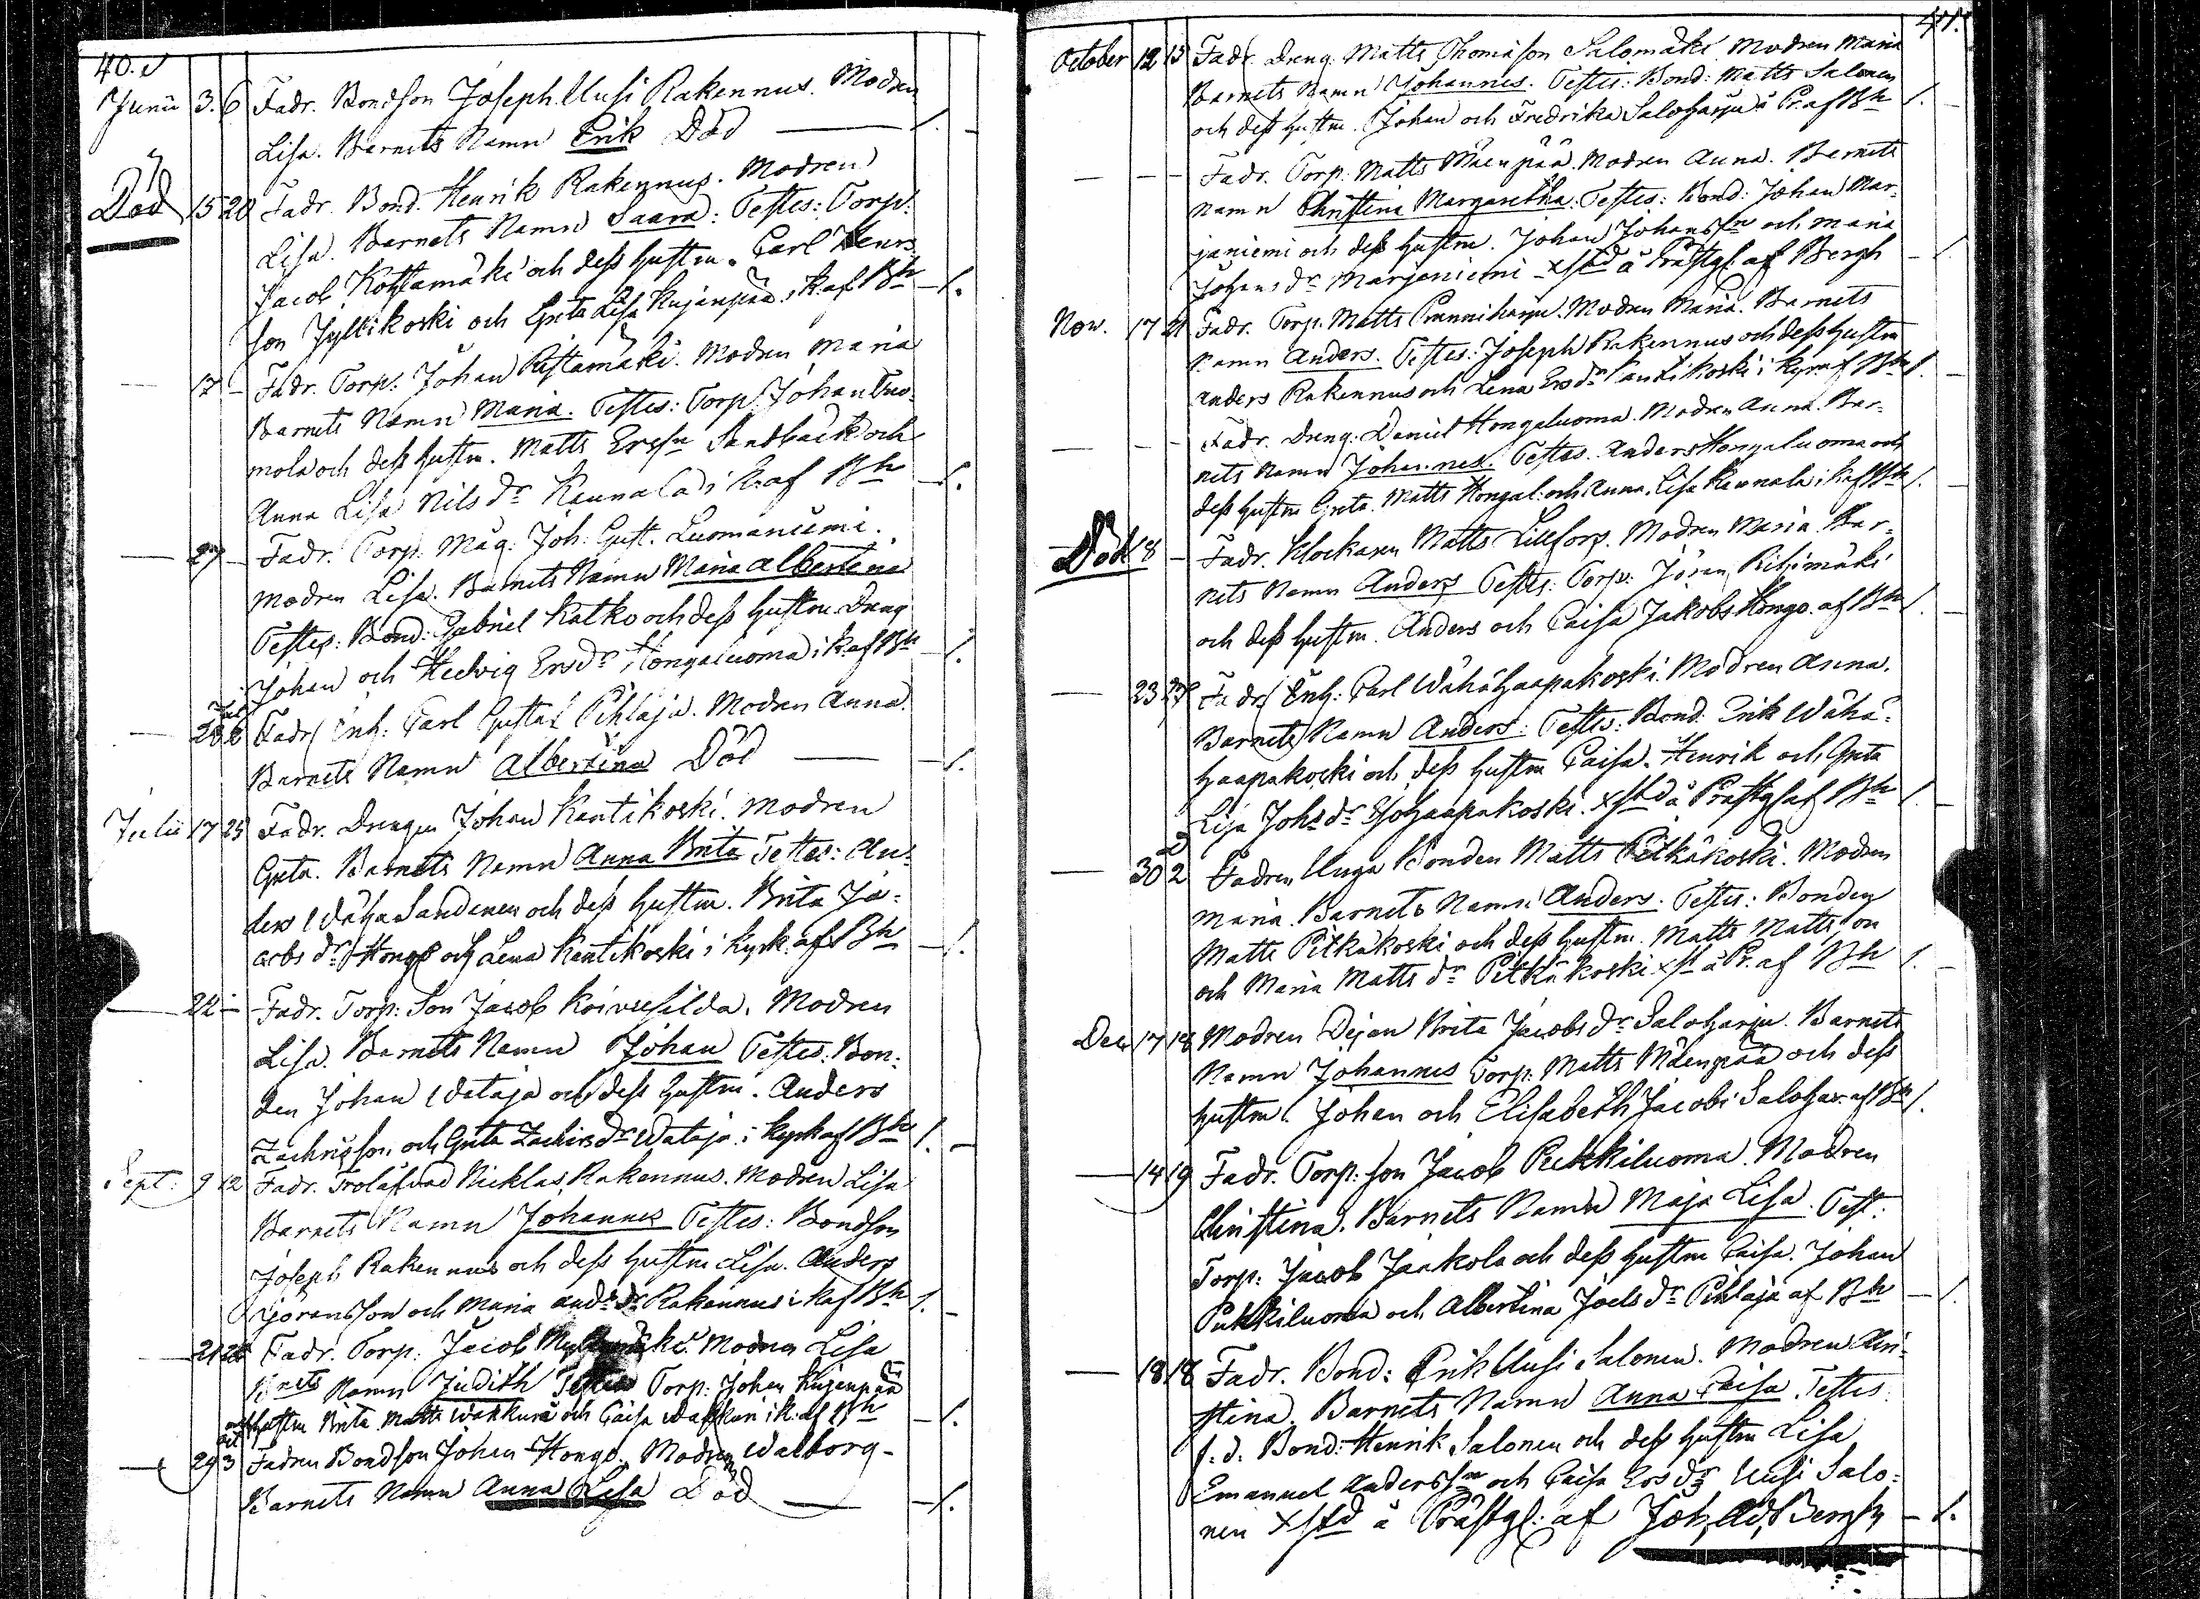 40.
Junii 3. 6 Fadr. Bondson Joseph Uusi Rakennus. Modren
Lisa. Barnets Namn Erik Död
Död 15 20 Fadr. Bond. Henrik Rakennus. Modren
Lisa. Barnets Namn Saara: Testes: Torp.
Jacob Kohtamäki och dess hustru. Carl Henrs
son Jyllikoski och Greta Lisa Kujanpää i K. af Bh
17 – Fadr. Torp: Johan Ristamäki. Modren Maria
Barnets Namn Maria. Testes: Torp. Johan Tuo-
mola och dess hustru. Matts Ersson Sandback och
Anna Lisa Nils dr Kaunala i K. af Bh
27 – Fadr. Torp. Måg: Joh: Gust. Luomaniemi.
Modren Lisa. Barnets Namn Maria Albertina
Testes: Bond: Gabriel Katko och dess hustru Dräng
Johan och Hedvig Ersdr Hongaluoma i K. af Bh
28 Fadr Inh: Carl Gustaf Pihlaja. Modren Anna.
Barnets Namn Albertina Död
Julii 17 25 Fadr. Drengen Johan Kantikoski. Modren
Greta. Barnets Namn Anna Brita Testes: An-
ders Wäha Sandenen och dess hustru. Brita Ja-
cobs dr Hongo och Lena Kantikoski i Kyrk. af Bh
24 – Fadr. Torp: Son Jacob Koivusilda. Modren
Lisa. Barnets Namn Johan Testes. Bon-
den Johan Wataja och dess hustru. Anders
Zachrisson och Greta Zachrisdr Wataja i Kyrk af Bh
Sept: 9 12 Fadr. Niklas Rakennus. Modren Lisa
Barnets Namn Johannes Testes: Bondson
Joseph Rakennus och dess hustru Lisa. Anders
Jöransson och Maria And. dr Rakennus i K af Bh
21 26 Fadr. Torp. Jacob Modren Lisa
Bnets Namn Judith Testes Torp: Johan Kujanpää
hustru Brita. Matts Wakkuri och Caisa Wakkuri i K. af Bh
29 3 Fadren Bondson Johan Hongo. Modren Walborg
Barnets Namn Anna Lisa Död
41.
October 12 13 Fadr. Dreng. Matts Thomasson Salomäki. Modren Maria
Barnets Namn Johannes. Testes: Bond: Matts Salonen
och dess hustru. Johan och Fredrika Saloharju å Pr af Bh
– – – Fadr. Torp. Matts Mäenpää. Modren Anna. Barnets
Namn Christina Margaretha. Testes: Bond: Johan Mar-
janiemi och dess hustru. Johan Johansson och Maria
Johans dr Marjaniemi xstd å Prästg. af Bergh
Nov. 17 21 Fadr. Torp. Matts Prunniharju. Modren Maria. Barnets
Namn Anders. Testes: Joseph Rakennus och dess hustru
Anders Rakennus och Lena Ersdr Kantikoski i Kyr. af Bh
– – – Fadr. Dreng. Daniel Hongaluoma. Modren Anna. Bar-
nets Namn Johannes. Testes. Anders Hongaluoma och
dess hustru Greta. Matts Hongal: och Anna Lisa Kaunala i K af Bh
Död 18 – Fadr. Klockaren Matts Lillfors. Modren Maria. Bar-
nets Namn Anders Testes: Torp: Jöran Riihimäki
och dess hustru. Anders och Caisa Jakobs Hongo. af Bh
23 Fadr Inh: Carl Wähähaapakoski. Modren Anna.
Barnets Namn Anders: Testes: Bond. Erik Wähä-
haapakoski och dess hustru Caisa. Henrik och Greta
Lisa Johs dr Isohaapakoski. xstd å Prästg af Bh
30 2 Fadren Unga Bonden Matts Pitkäkoski. Modren
Maria. Barnets Namn Anders. Testes: Bonden
Matts Pitkäkoski och dess hustru. Matts Mattsson
och Maria Matts dr Pitkäkoski xst å Pr. af Bh
Dec. 17 18 Modren Pigan Brita Jacobs dr Saloharju. Barnets
Namn Johannes Torp. Matts Mäenpää och dess
hustru. Johan och Elisabeth Jacobs Salohar. af Bh
14 19 Fadr. Torp: son Jacob Pukkiluoma. Modren
Christina. Barnets Namn Maja Lisa. Test:
Torp: Jacob Jaakola och dess hustru Caisa. Johan
Pukkiluoma och Albertina Joels dr Pihlaja af Bh
18 18 Fadr. Bond: Erik Uusi Salonen. Modren Chri-
stina. Barnets Namn Anna Caisa. Testes
f. d. Bond: Henrik Salonen och dess hustru Lisa
Emanuel Andersson och Caisa Ers dr Uusi Salo-
nen xstd å Prästg: af Joh. Ad. Bergh